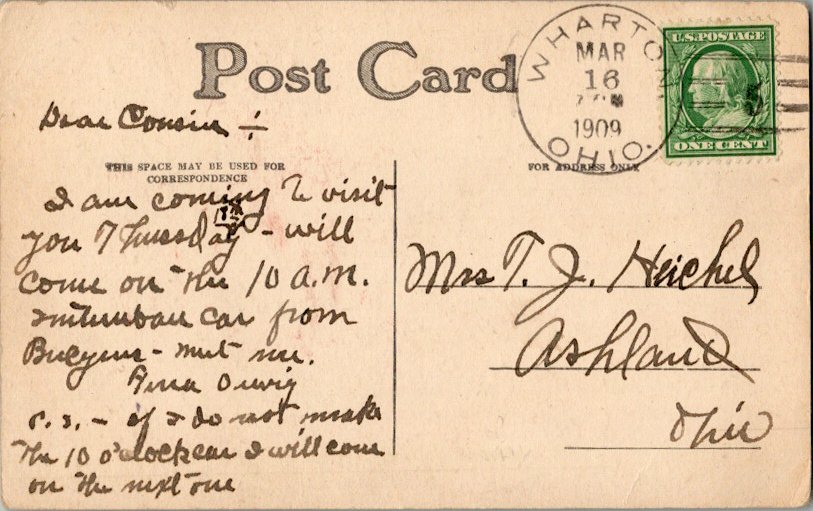 Post Card
WHARTON
MAR
16
1909
OHIO.
U.S. POSTAGE
ONE CENT
Dear Cousin :-
THIS SPACE MAY BE USED FOR
CORRESPONDENCE
FOR ADDRESS ONLY
I am coming to visit
18th
you Thursday - will
come on the 10 a.m.
interurban car from
Bucyrus - meet me.
Orwig
P.S. - if I do not make
the 10 o'clock car I will come
on the next one
Mrs T. J. Heichel
Ashland
Ohio